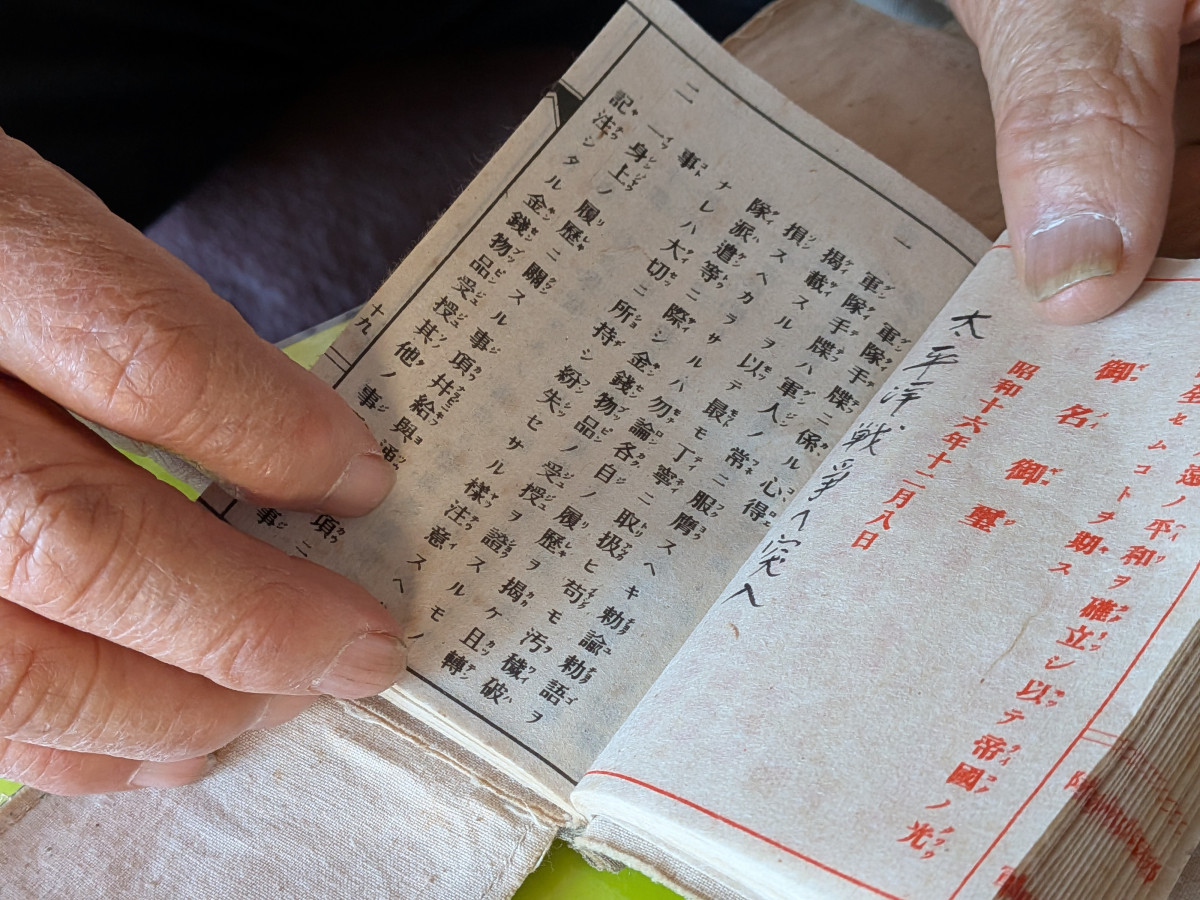 遠ノ平和ヲ確立シ以テ帝國ノ光
セムコトヲ期ス
御名御璽
昭和十六年十二月八日
太平洋戦争へ突入
軍隊手牒ニ係ル心得
一 軍隊手牒ハ軍人ノ常ニ服膺スヘキ勅諭勅語ヲ
掲載スルヲ以テ最モ丁寧ニ取扱ヒ苟モ汚穢破
損スヘカラサルハ勿論各自ノ履歴ヲ掲ケ且轉
隊派遣等ニ際シ金錢物品ノ受授ヲ證スルモノ
ナレハ大切ニ所持シ紛失セサル樣注意スヘ
事
二 一身上ノ履歴ニ關スル事項并給與
記注シタル金錢物品受授其他ノ事項ニ
事
十九